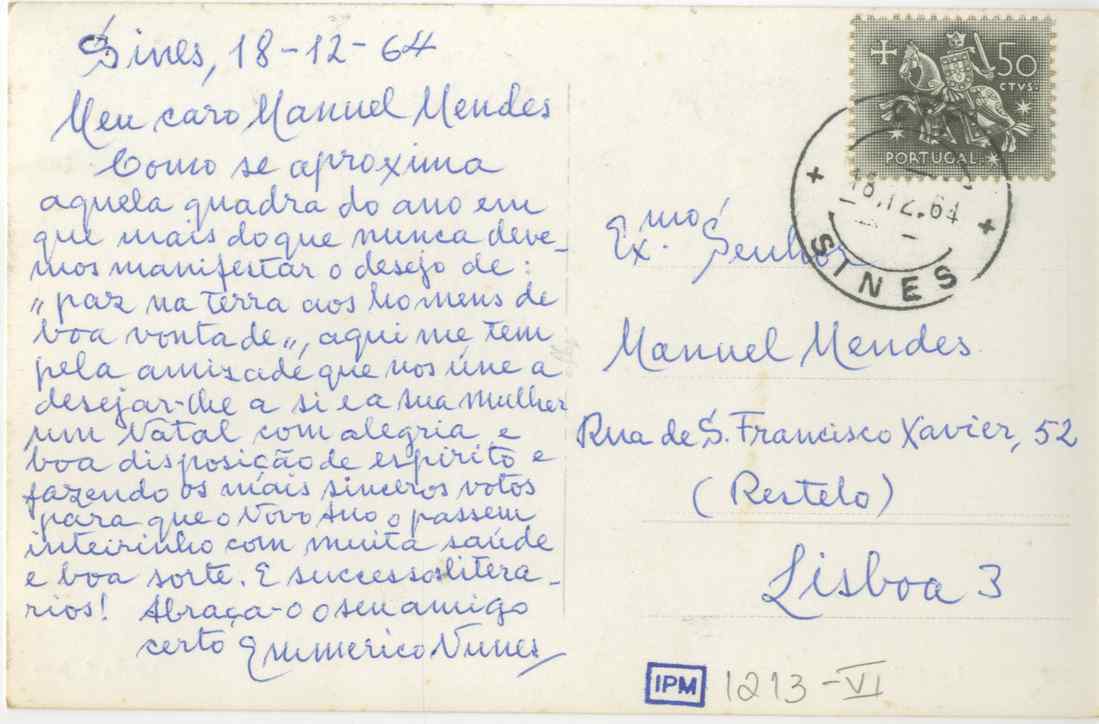 Sines, 18-12-64
Meu caro Manuel Mendes
Como se aproxima
aquela quadra do ano em
que mais do que nunca deve-
mos manifestar o desejo de:
"paz na terra aos homens de
boa vontade", aqui me tem
pela amizade que nos úne a
desejar-lhe a si e a sua mulher
um Natal com alegria e
boa disposição de espirito e
fazendo os mais sinceros votos
para que o Novo Ano o passem
inteirinho com muita saúde
e boa sorte. E successos litera-
rios! Abraça-o o seu amigo
certo Emmerico Nunes
50
CTVS.
PORTUGAL
18.12.64
SINES
Ex.mo Senhor
Manuel Mendes
Rua de S. Francisco Xavier, 52
(Restelo)
Lisboa 3
IPM 1213-VI